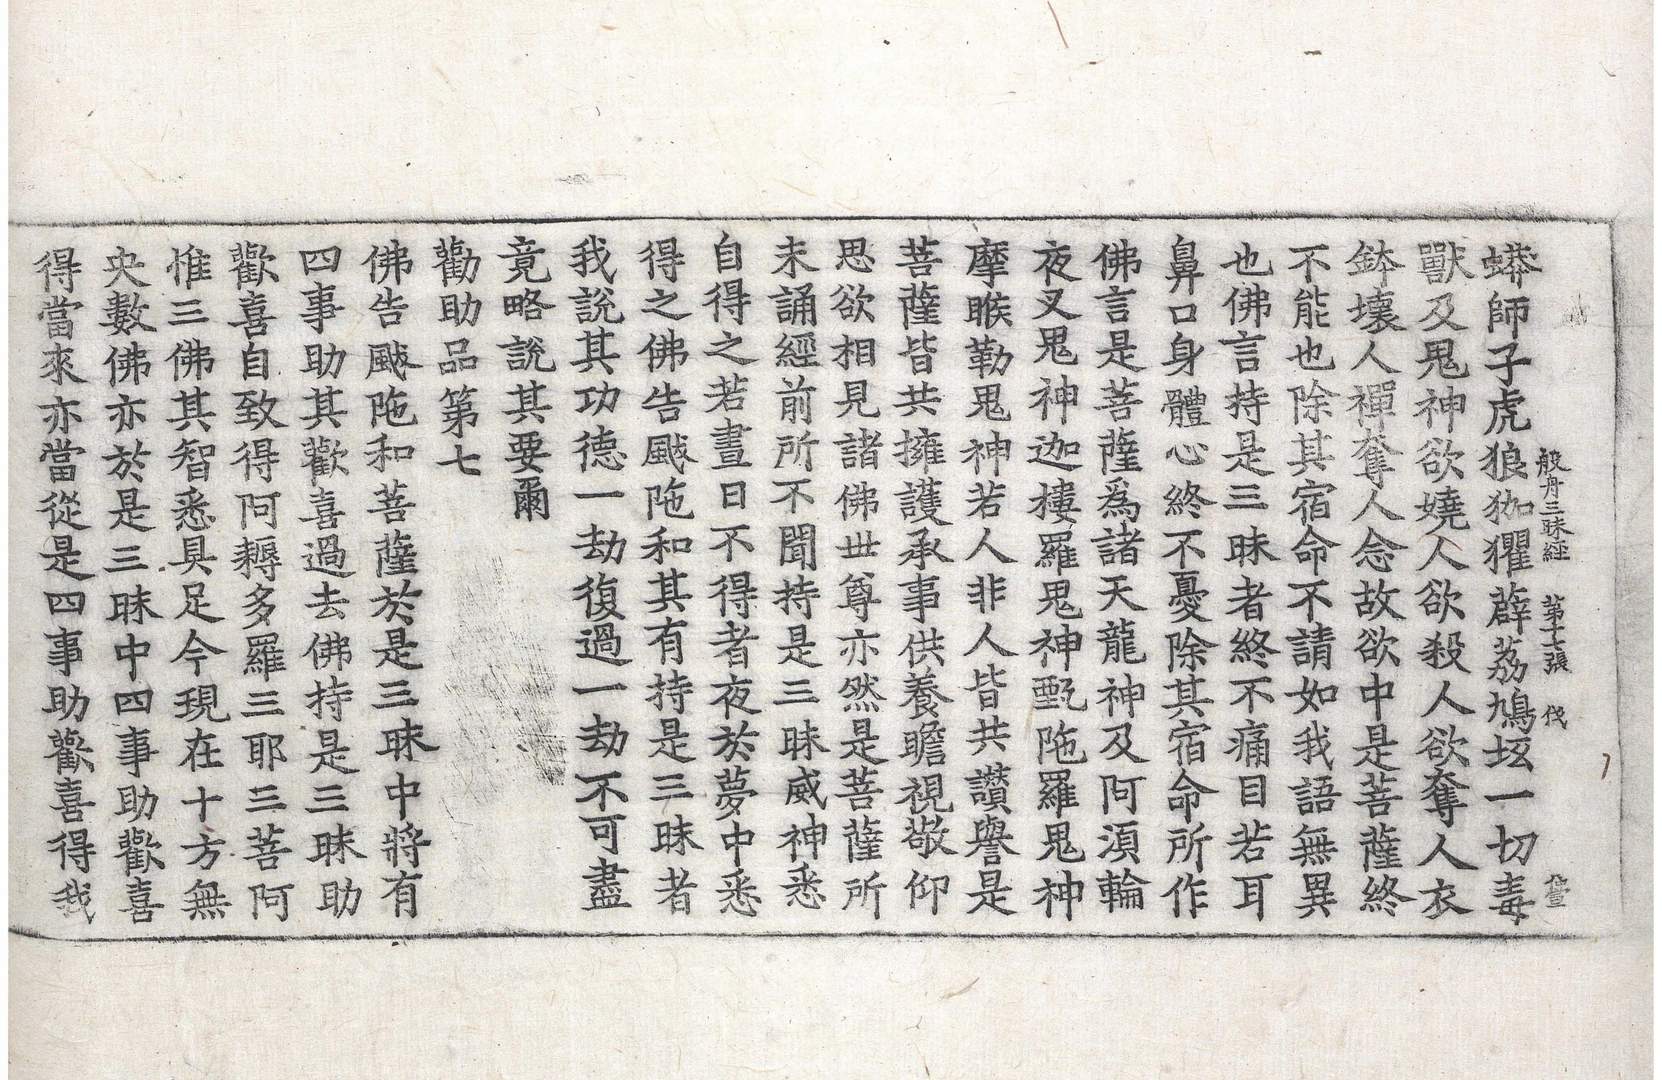 般舟三昧經 第十七張 伐
蟒師子虎狼狐玃薜荔鳩垓一切毒
獸及鬼神欲嬈人欲殺人欲奪人衣
鉢壞人禪奪人念故欲中是菩薩終
不能也除其宿命不請如我語無異
也佛言持是三昧者終不痛目若耳
鼻口身體心終不憂除其宿命所作
佛言是菩薩爲諸天龍神及阿須輪
夜叉鬼神迦樓羅鬼神甄陁羅鬼神
摩睺勒鬼神若人非人皆共讃譽是
菩薩皆共擁護承事供養瞻視敬仰
思欲相見諸佛世尊亦然是菩薩所
未誦經前所不聞持是三昧威神悉
自得之若晝日不得者夜於夢中悉
得之佛告颰陁和其有持是三昧者
我說其功德一劫復過一劫不可盡
竟略說其要爾
勸助品第七
佛告颰陁和菩薩於是三昧中將有
四事助其歡喜過去佛持是三昧助
歡喜自致得阿耨多羅三耶三菩阿
惟三佛其智悉具足今現在十方無
央數佛亦於是三昧中四事助歡喜
得當來亦當從是四事助歡喜得我